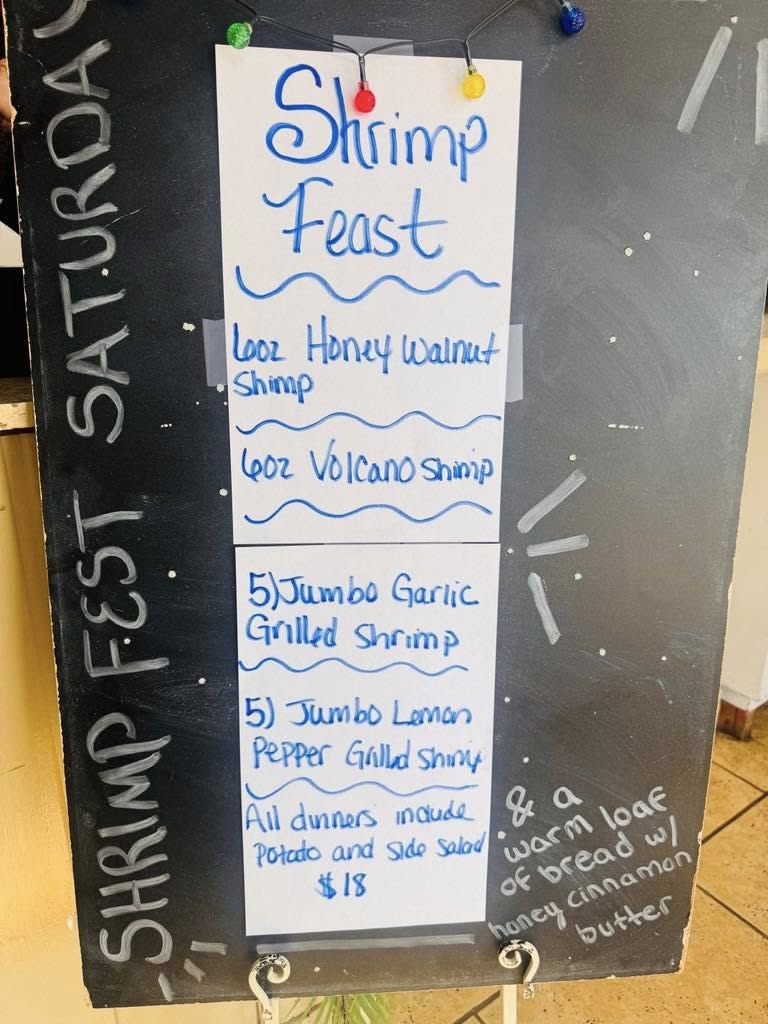 SHRIMP FEST SATURDAY
Shrimp
Feast
6oz Honey Walnut
Shimp
6oz Volcano Shimp
5) Jumbo Garlic
Grilled Shrimp
5) Jumbo Lemon
Pepper Grilled Shimp
All dinners include
Potato and side salad
$18
& a
warm loaf
of bread w/
honey cinnamon
butter